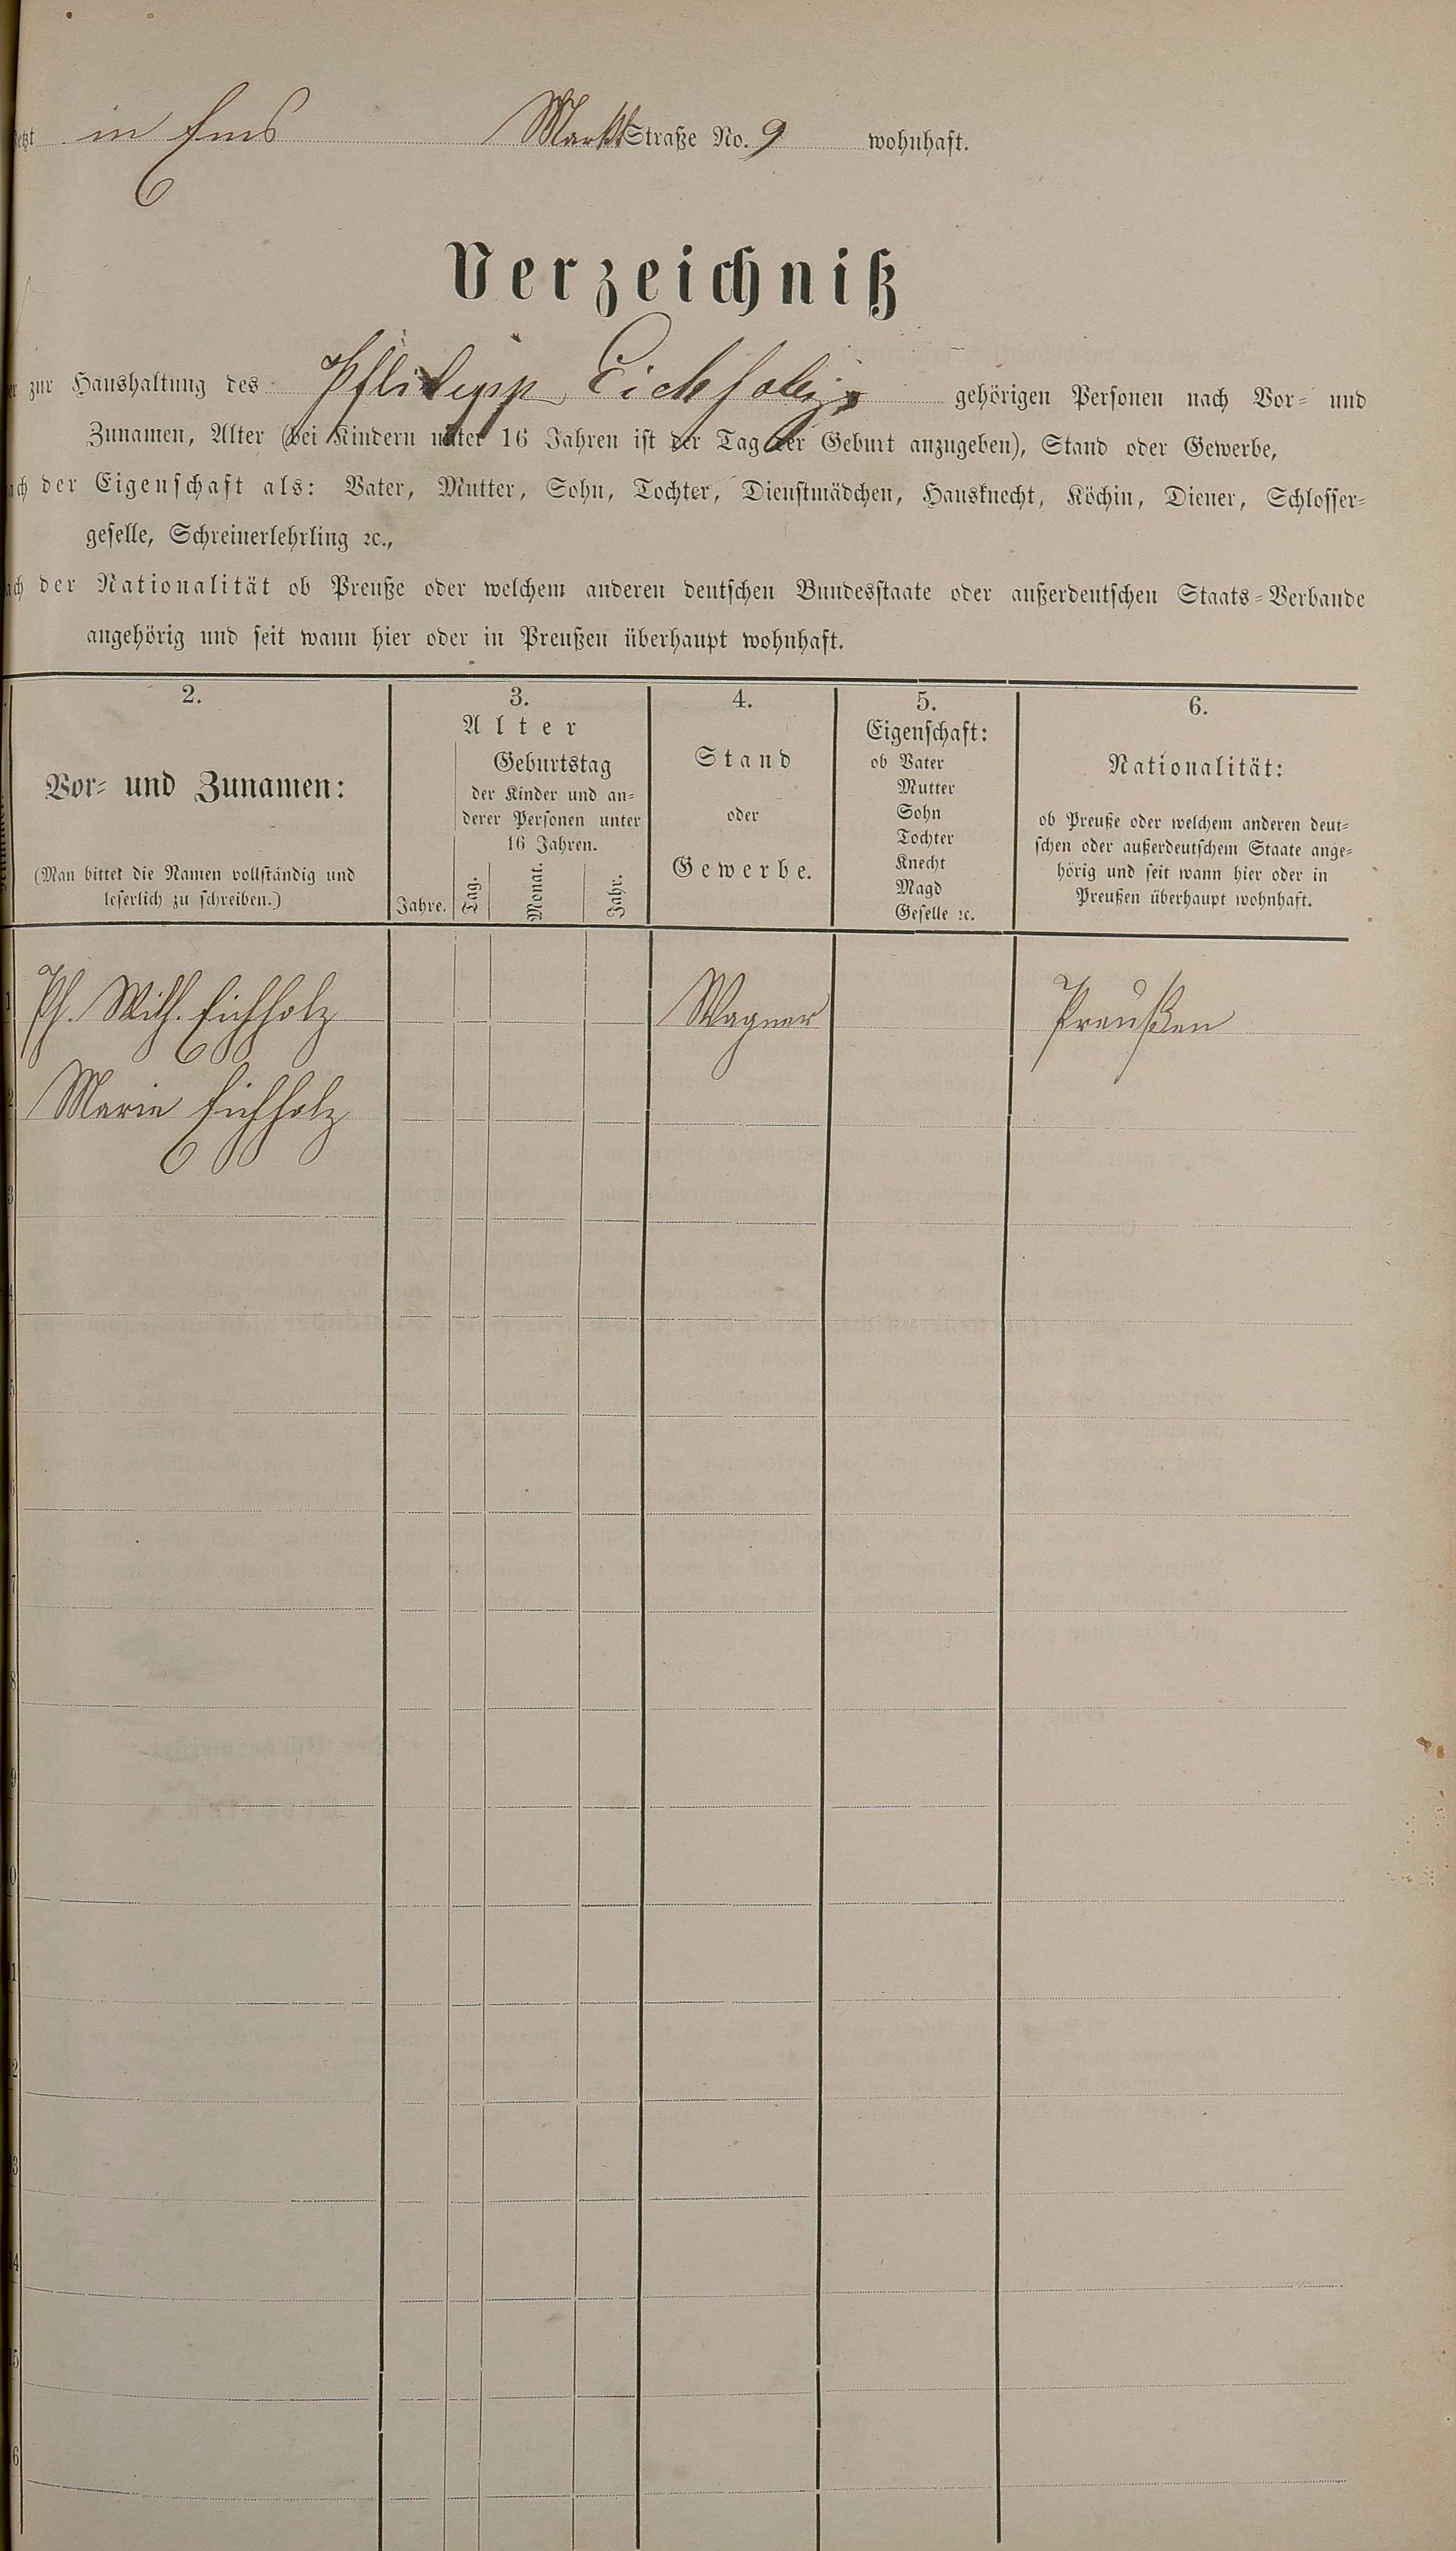 jetzt in Ems Markt Straße No. 9 wohnhaft.
Verzeichniß
er zur Haushaltung des Philipp Eichholz gehörigen Personen nach Vor- und
Zunamen, Alter (bei Kindern unter 16 Jahren ist der Tag der Geburt anzugeben), Stand oder Gewerbe,
ach der Eigenschaft als: Vater, Mutter, Sohn, Tochter, Dienstmädchen, Hausknecht, Köchin, Diener, Schlosser-
geselle, Schreinerlehrling ꝛc.,
ach der Nationalität ob Preuße oder welchem anderen deutschen Bundesstaate oder außerdeutschen Staats-Verbande
angehörig und seit wann hier oder in Preußen überhaupt wohnhaft.
2.
Vor- und Zunamen:
(Man bittet die Namen vollständig und
leserlich zu schreiben.)
3.
Alter
Geburtstag
der Kinder und an-
derer Personen unter
16 Jahren.
Jahre.
Tag.
Monat.
Jahr.
4.
Stand
oder
Gewerbe.
5.
Eigenschaft:
ob Vater
Mutter
Sohn
Tochter
Knecht
Magd
Geselle ꝛc.
6.
Nationalität:
ob Preuße oder welchem anderen deut-
schen oder außerdeutschem Staate ange-
hörig und seit wann hier oder in
Preußen überhaupt wohnhaft.
1 Ph. Wilh. Eichholz Wagner Preußen
2 Marie Eichholz
3
4
5
6
7
8
9
0
1
2
3
4
5
6